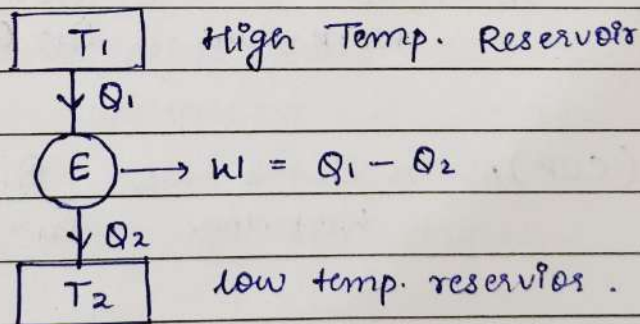 T1 High Temp. Reservoir
Q1
E → W = Q1 - Q2 .
Q2
T2 low temp. reservios .